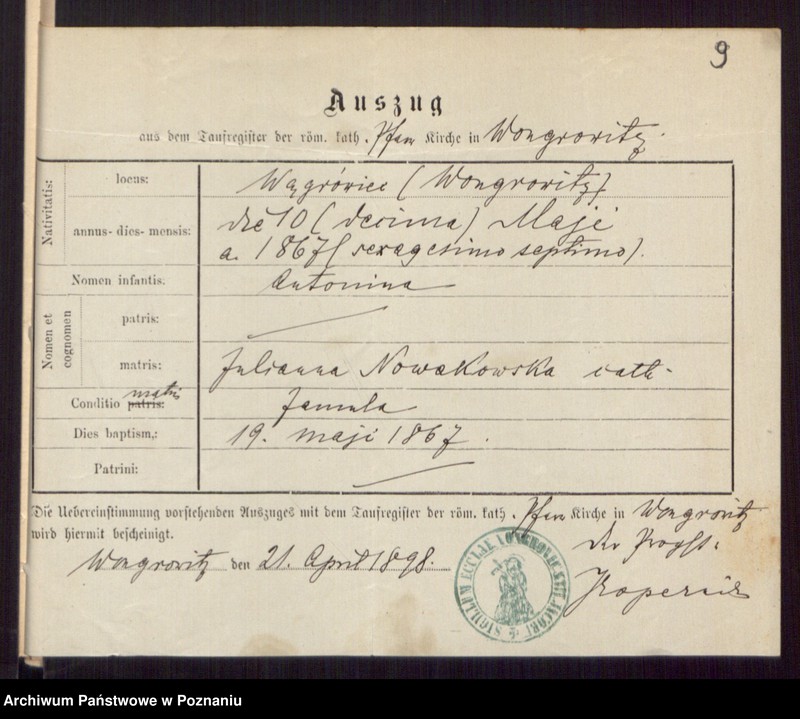 9
Auszug
aus dem Taufregister der röm. kath. Pfarr Kirche in Wongrowitz.
Nativitatis:
locus:
Wągrówiec (Wongrowitz)
annus- dies- mensis:
die 10 (decima) Maji
a. 1867 (sexagesimo septimo).
Nomen infantis:
Antonina
Nomen et cognomen
patris:
matris:
Julianna Nowakowska cath.
Conditio patris: matris
famula
Dies baptism.:
19. maji 1867.
Patrini:
Die Uebereinstimmung vorstehenden Auszuges mit dem Taufregister der röm. kath. Pfarr Kirche in Wongrowitz
wird hiermit bescheinigt.
Wongrowitz den 21. April 1898.
der Propst
SIGILLUM ECCLIAE JACOBI
Archiwum Państwowe w Poznaniu